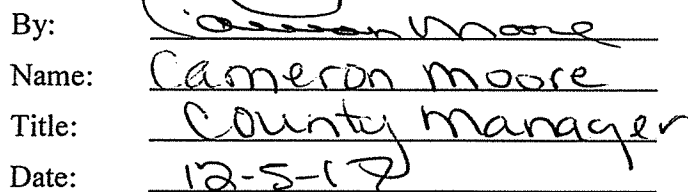 By: Cameron Moore
Name: Cameron Moore
Title: County Manager
Date: 12-5-17